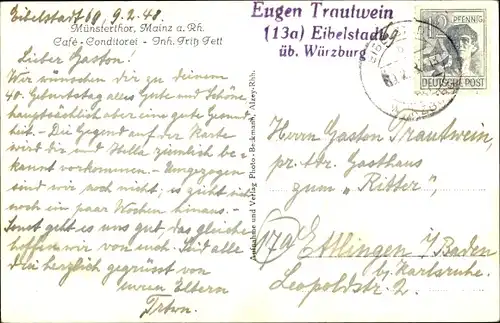 Eibelstadt 69, 9.2.48.
Münsterthor, Mainz a. Rh.
Café-Conditorei - Inh. Fritz Fett
Lieber Gaston!
Wir wünschen dir zu deinem
40. Geburtstag alles Gute und Schöne
hauptsächlich aber eine gute Gesund-
heit. - Die Gegend auf der Karte
wird dir und Hella ziemlich be-
kannt vorkommen. - Umgezogen
sind wir noch nicht; es zieht sich
noch ein paar Wochen hinaus. -
Sonst geht es uns gut, das gleiche
hoffen wir von euch. Seid alle
drei herzlich gegrüsst von
euren Eltern
Trtwn.
Aufnahme und Verlag Photo-Beckmann, Alzey-Rhh.
Eugen Trautwein
(13a) Eibelstadt 69
üb. Würzburg
12 PFENNIG
DEUTSCHE POST
Herrn Gaston Trautwein,
pr. Adr. Gasthaus
zum „Ritter",
17a Ettlingen i/Baden
bj. Karlsruhe.
Leopoldstr. 2.